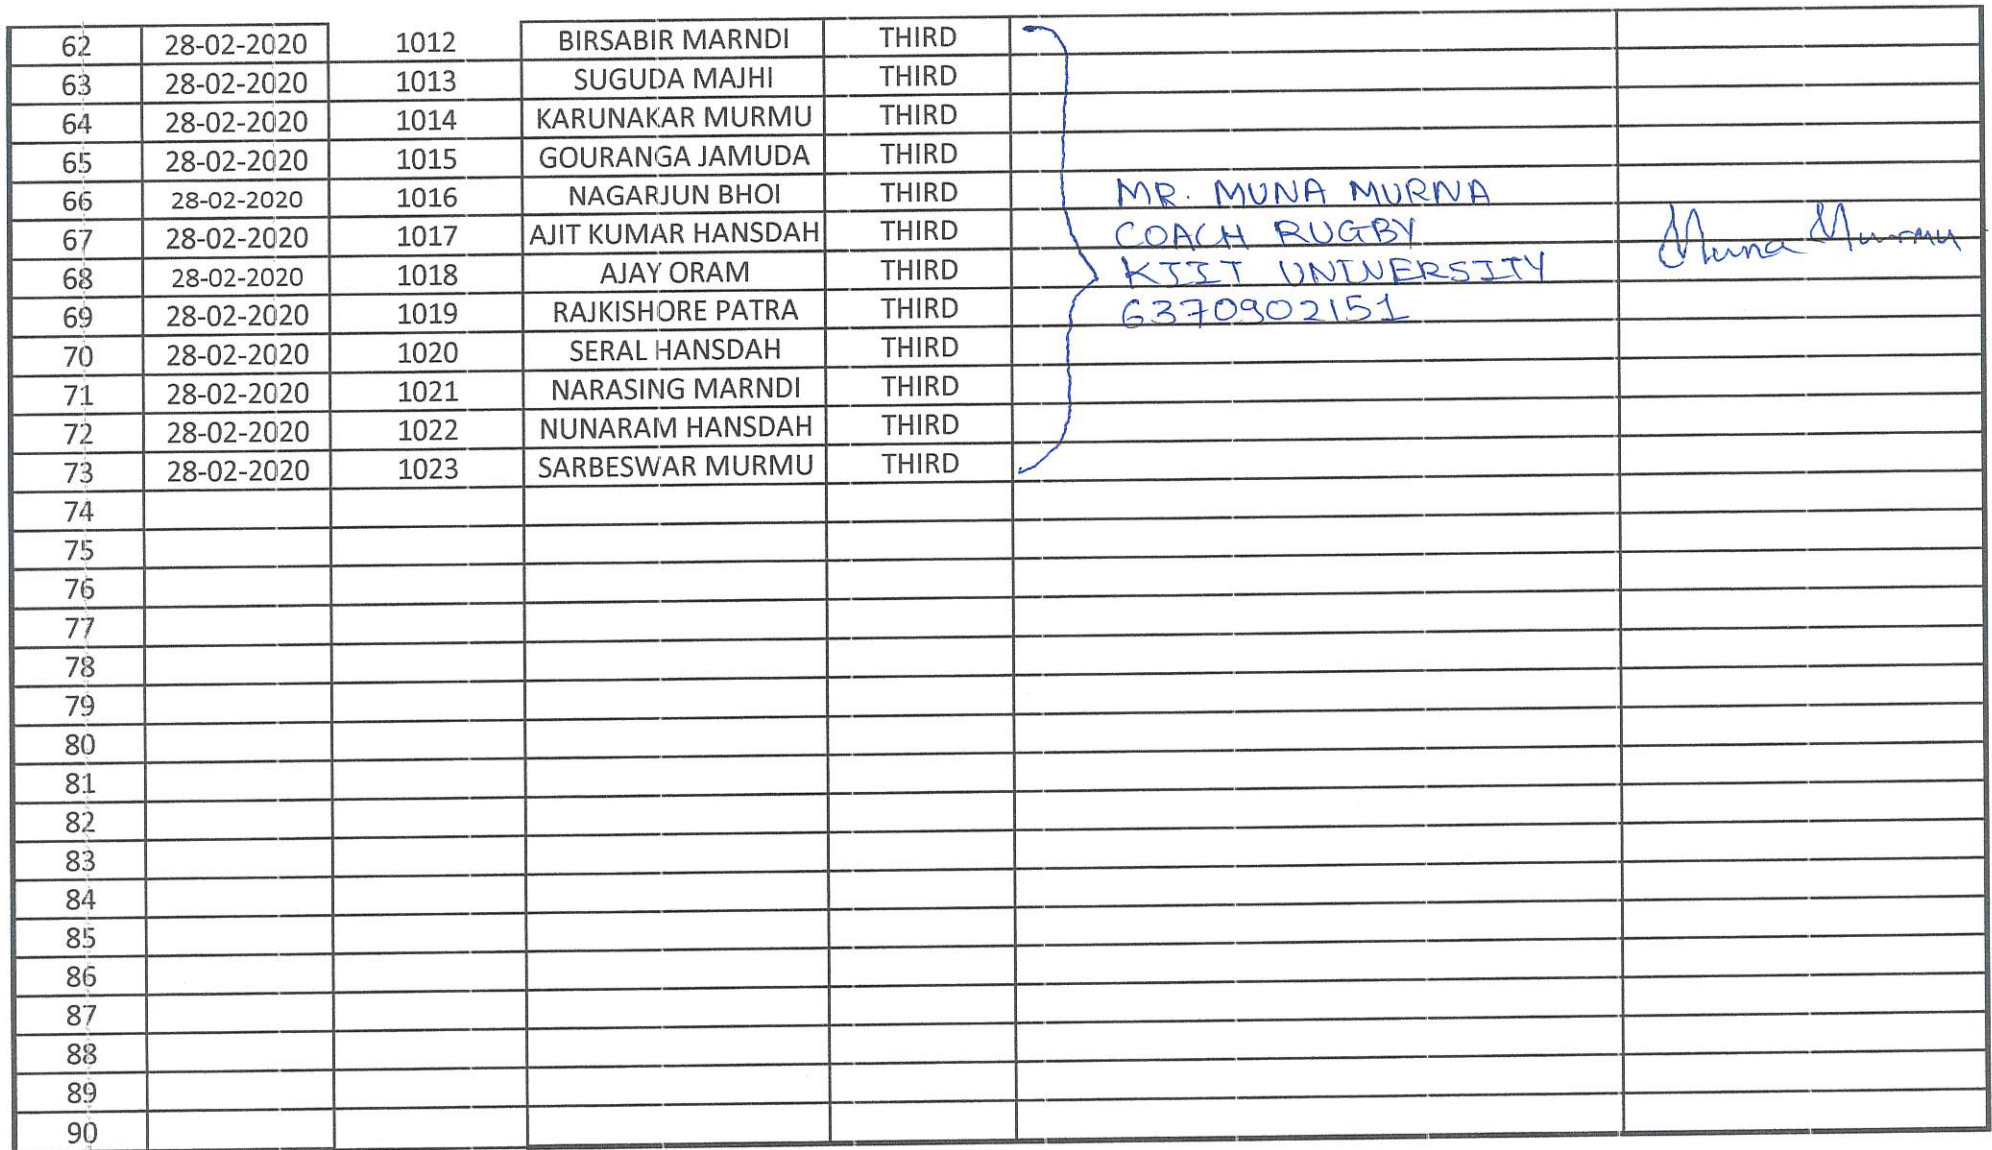 62 28-02-2020 1012 BIRSABIR MARNDI THIRD
63 28-02-2020 1013 SUGUDA MAJHI THIRD
64 28-02-2020 1014 KARUNAKAR MURMU THIRD
65 28-02-2020 1015 GOURANGA JAMUDA THIRD
66 28-02-2020 1016 NAGARJUN BHOI THIRD MR. MUNA MURNA
67 28-02-2020 1017 AJIT KUMAR HANSDAH THIRD COACH RUGBY Muna Murmu
68 28-02-2020 1018 AJAY ORAM THIRD KIIT UNIVERSITY
69 28-02-2020 1019 RAJKISHORE PATRA THIRD 6370902151
70 28-02-2020 1020 SERAL HANSDAH THIRD
71 28-02-2020 1021 NARASING MARNDI THIRD
72 28-02-2020 1022 NUNARAM HANSDAH THIRD
73 28-02-2020 1023 SARBESWAR MURMU THIRD
74
75
76
77
78
79
80
81
82
83
84
85
86
87
88
89
90